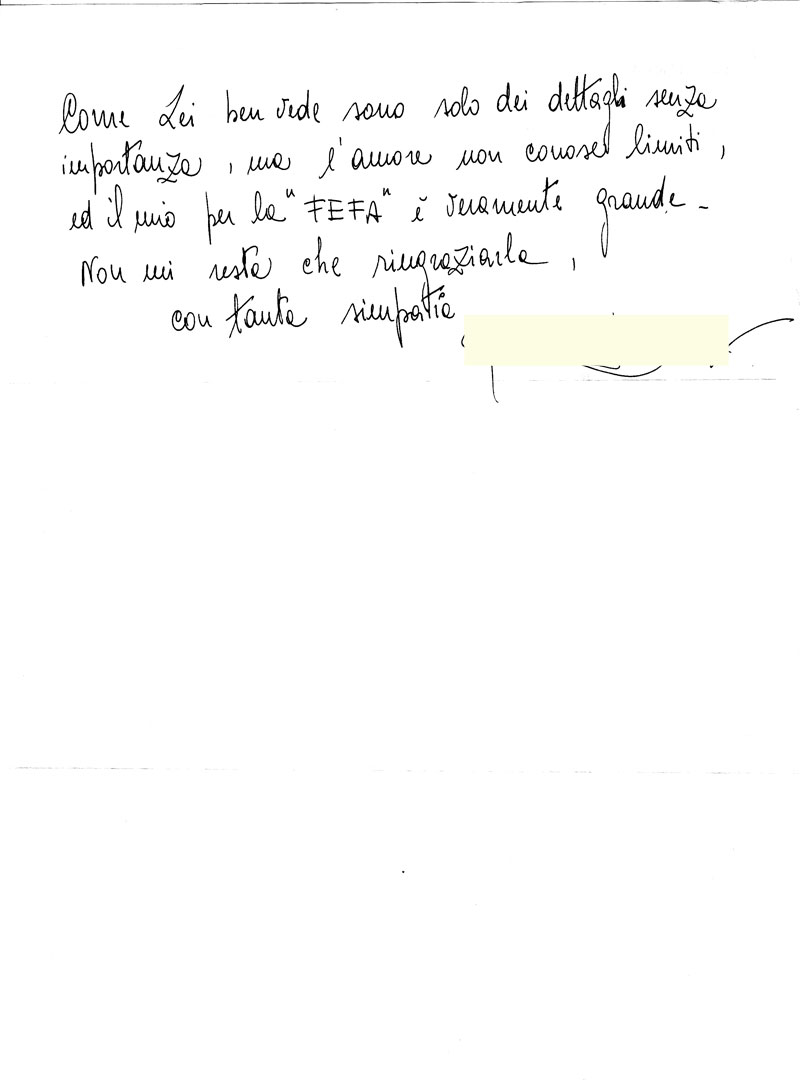 Come Lei ben vede sono solo dei dettagli senza
importanza, ma l'amore non conosce limiti,
ed il mio per la "FEFA" è veramente grande -
Non mi resta che ringraziarla,
con tanta simpatia